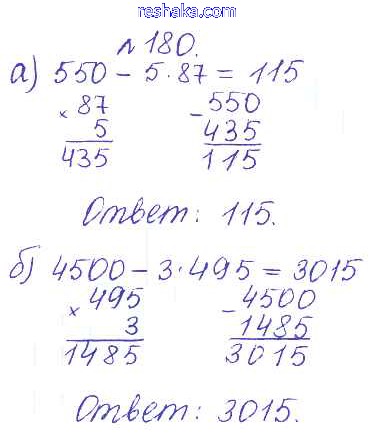 reshaka.com
№180.
а) 550 – 5·87 = 115
× 87 – 550
5 435
435 115
Ответ: 115.
б) 4500 – 3·495 = 3015
× 495 – 4500
3 1485
1485 3015
Ответ: 3015.